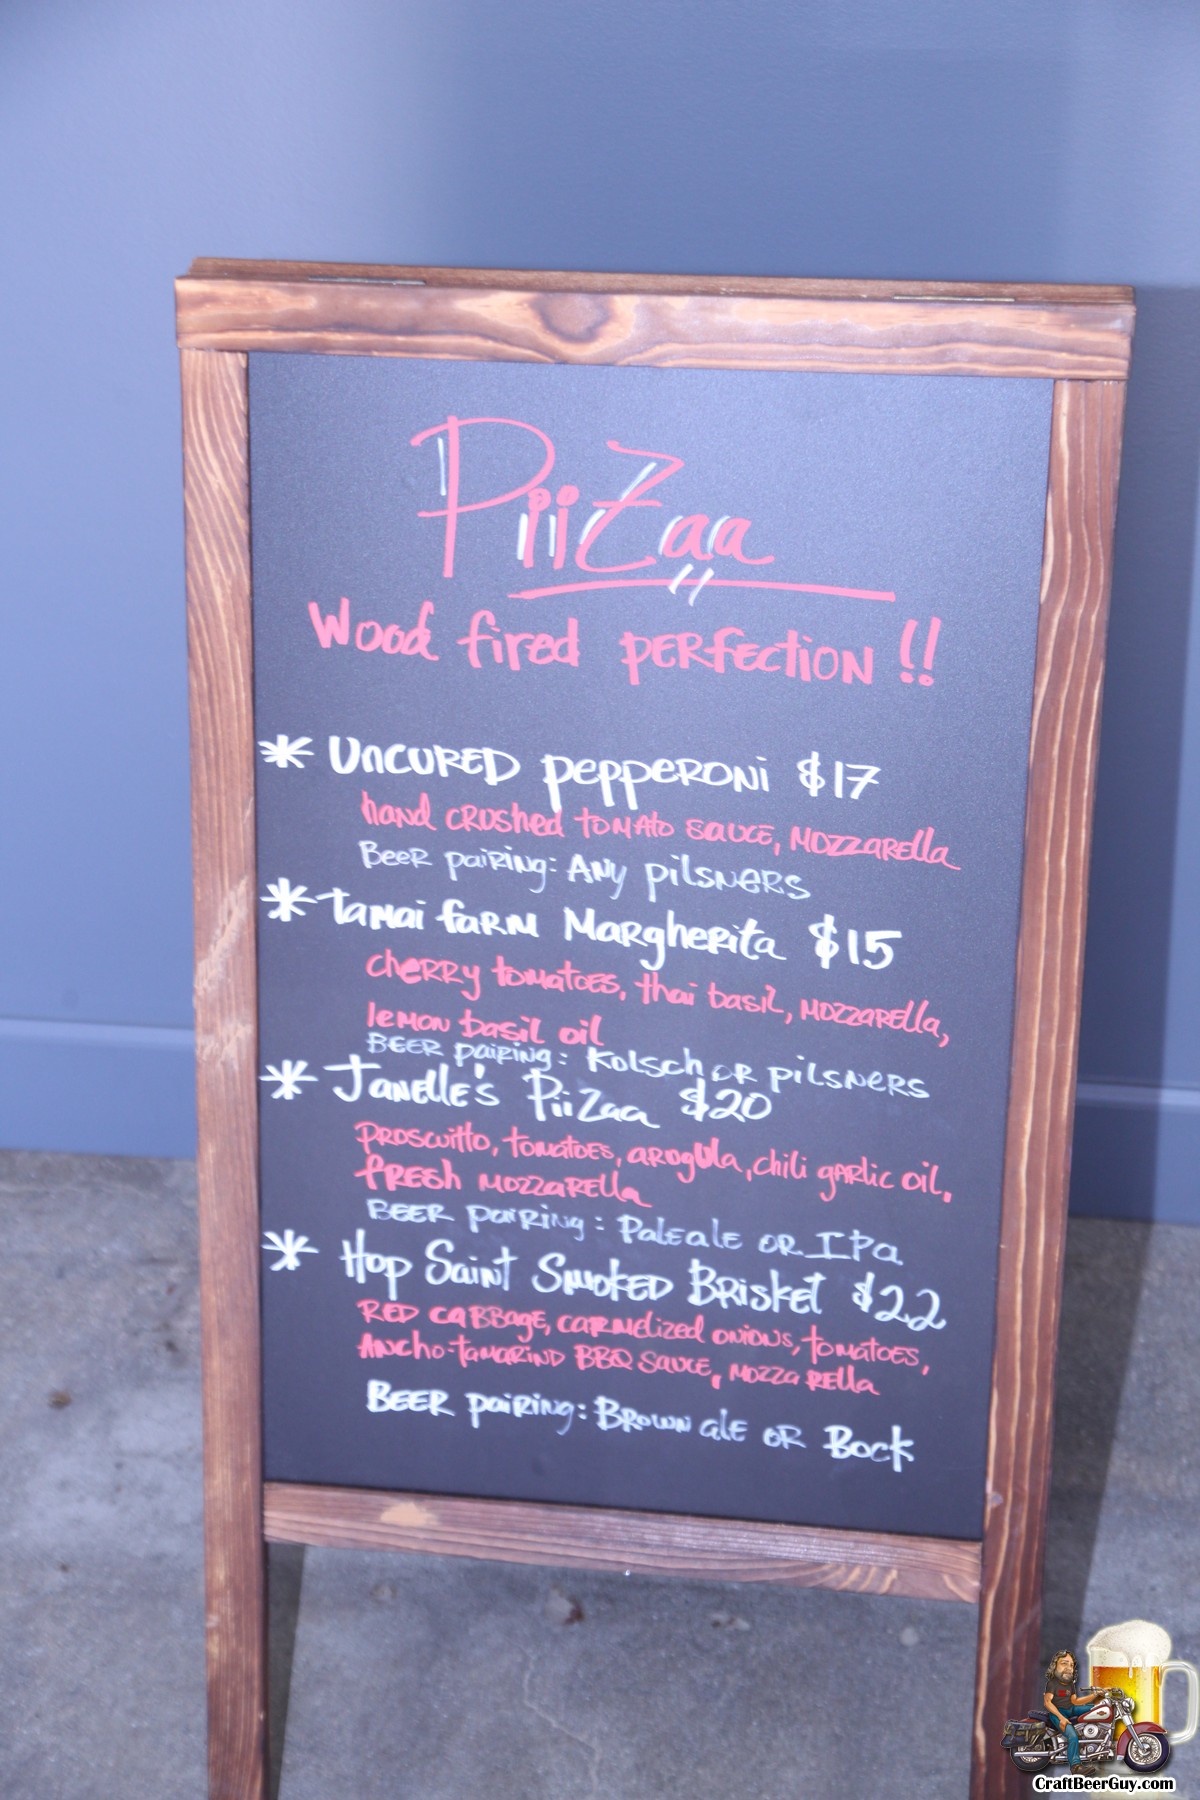 PiiZaa
Wood fired perfection!!
* Uncured pepperoni $17
hand crushed tomato sauce, mozzarella
Beer pairing: Any pilsners
* Tamai farm Margherita $15
cherry tomatoes, thai basil, mozzarella,
lemon basil oil
Beer pairing: Kolsch or pilsners
* Janelle's PiiZaa $20
Proscuitto, tomatoes, arugula, chili garlic oil,
fresh mozzarella
Beer pairing: Pale ale or IPA
* Hop Saint Smoked Brisket $22
Red cabbage, carmelized onions, tomatoes,
Ancho-tamarind BBQ sauce, mozzarella
Beer pairing: Brown ale or Bock
CraftBeerGuy.com